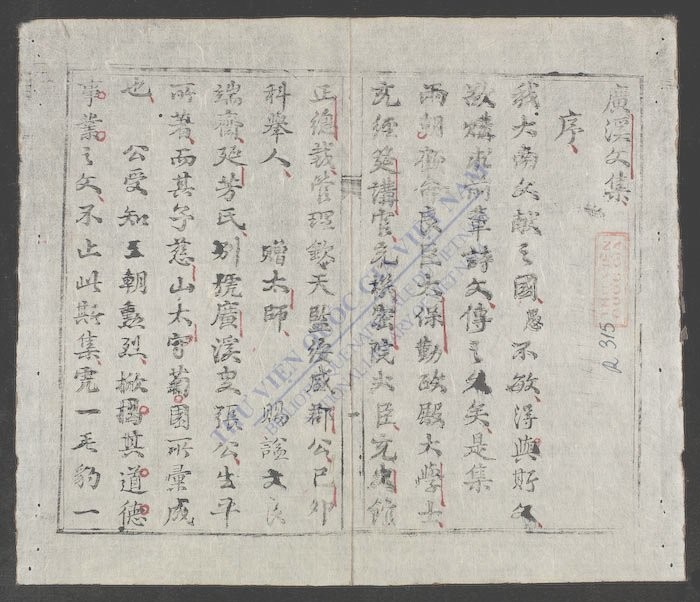 廣溪文集
序
我大南文献之國愚不敏淂與斯文
詞章詩文傳之久矣是集
兩朝 良臣太保勤政殿大學士
充經筵講官充樞密院大臣充史館
正總裁管理欽天監綏盛郡公己卯
科舉人 贈太師 賜諡文良
端齋延芳氏別號廣溪叟張公生平
所著而其子慈山太守菊園所彙成
也 公受知五朝勲烈掀揭其道德
事業之文不止此斯集寔一毛豹一
R 315
THƯ VIỆN QUỐC GIA VIỆT NAM